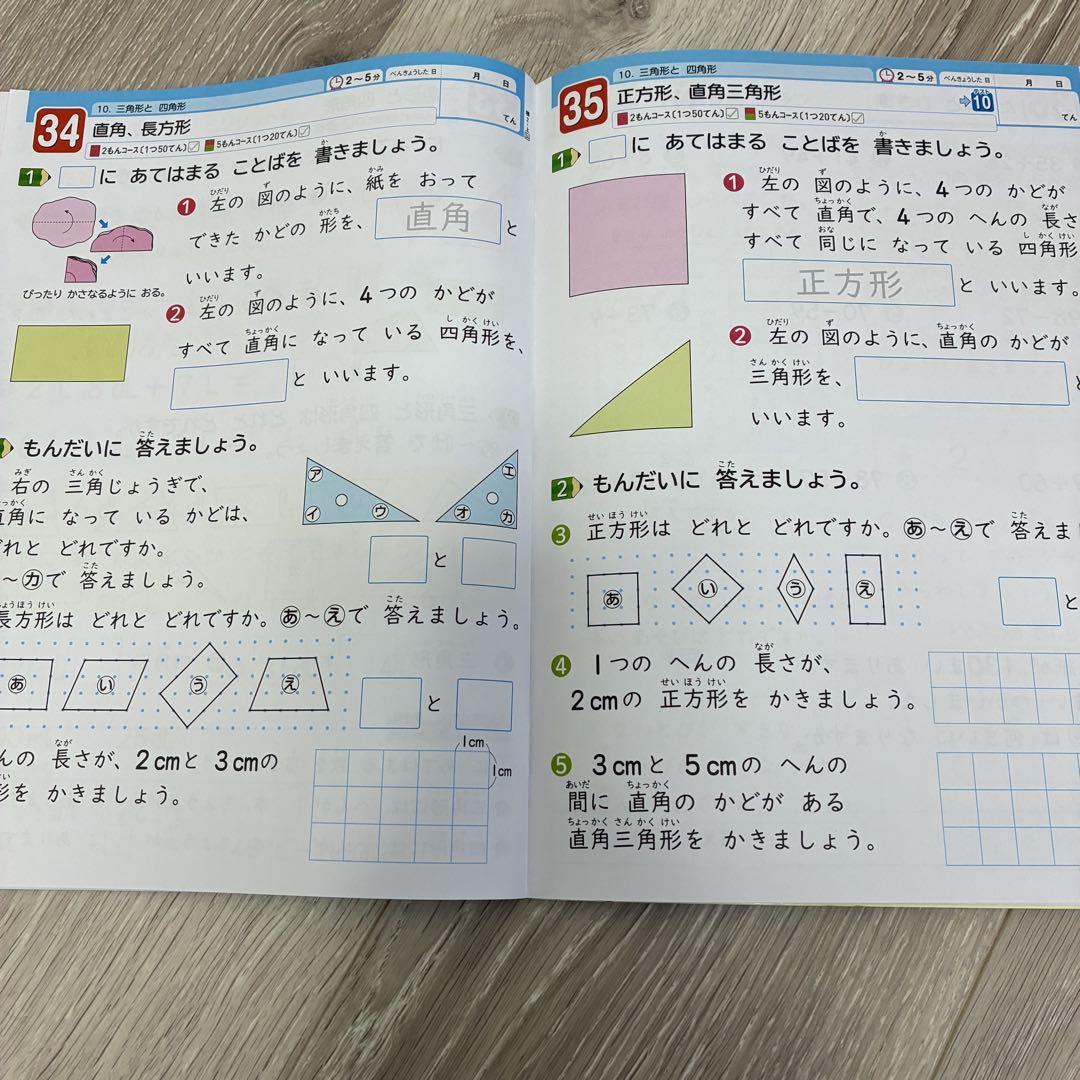 10. 三角形と 四角形
2〜5分
べんきょうした日
月
日
34
直角、長方形
てん
2もんコース(1つ50てん)
5もんコース(1つ20てん)
1
に あてはまる ことばを 書きましょう。
1 左の 図のように、紙を おって
できた かどの 形を、直角と
いいます。
ぴったり かさなるように おる。
2 左の 図のように、4つの かどが
すべて 直角に なって いる 四角形を、
と いいます。
もんだいに 答えましょう。
右の 三角じょうぎで、
角に なって いる かどは、
れと どれですか。
〜カで 答えましょう。
ア
イ
ウ
エ
オ
カ
と
長方形は どれと どれですか。あ〜えで 答えましょう。
あ
い
う
え
と
んの 長さが、2cmと 3cmの
形を かきましょう。
1cm
1cm
10. 三角形と 四角形
2〜5分
べんきょうした日
月
日
35
正方形、直角三角形
テスト
10
てん
2もんコース(1つ50てん)
5もんコース(1つ20てん)
1
に あてはまる ことばを 書きましょう。
1 左の 図のように、4つの かどが
すべて 直角で、4つの へんの 長さ
すべて 同じに なって いる 四角形
正方形と いいます。
2 左の 図のように、直角の かどが
三角形を、
いいます。
2 もんだいに 答えましょう。
3 正方形は どれと どれですか。あ〜えで 答えま
あ
い
う
え
と
4 1つの へんの 長さが、
2cmの 正方形を かきましょう。
5 3cmと 5cmの へんの
間に 直角の かどが ある
直角三角形を かきましょう。